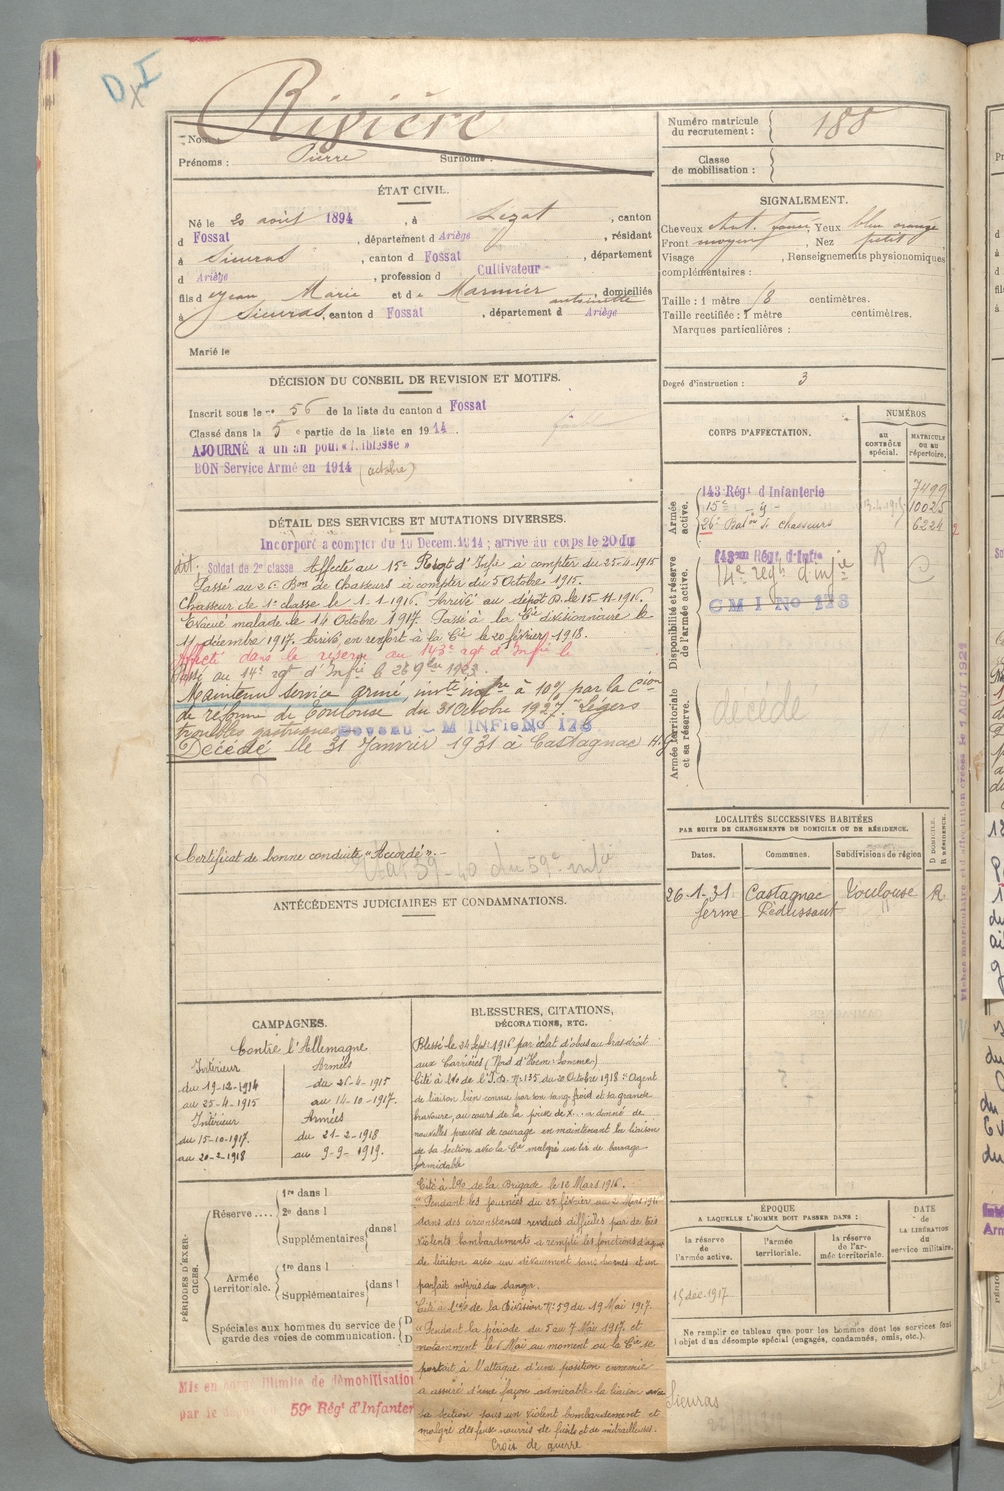 D x I
Rivière
Nom :
Prénoms : Pierre Surnoms :
Numéro matricule du recrutement : 188
Classe de mobilisation :
ÉTAT CIVIL.
Né le 20 août 1894, à Lezat, canton
d Fossat, département d Ariège, résidant
à Sieuras, canton d Fossat, département
d Ariège, profession d Cultivateur
fils d Jean Marie et de Marmier antoinette, domiciliés
à Sieuras, canton d Fossat, département d Ariège
Marié le
SIGNALEMENT.
Cheveux chat. foncé Yeux bleu orangé
Front moyen, Nez petit
Visage , Renseignements physionomiques
complémentaires :
Taille : 1 mètre 58 centimètres.
Taille rectifiée : 1 mètre centimètres.
Marques particulières :
Degré d'instruction : 3
DÉCISION DU CONSEIL DE REVISION ET MOTIFS.
Inscrit sous le no 56 de la liste du canton d Fossat
Classé dans la 5e partie de la liste en 1914.
AJOURNÉ a un an pour « Faiblesse »
BON Service Armé en 1914 (octobre)
faible
DÉTAIL DES SERVICES ET MUTATIONS DIVERSES.
Incorporé a compter du 19 Décem. 1914 ; arrivé au corps le 20 du
dit; Soldat de 2e classe. Affecté au 15e Régt d'Infie à compter du 25-4-1915
Passé au 26e Bon de Chasseurs à compter du 5 Octobre 1915.
Chasseur de 1e classe le 1-1-1916. Arrivé au dépôt D. le 15-11-1916.
Evacué malade le 14 Octobre 1917. Passé à la Cie divisionnaire le
11 décembre 1917. Arrivé en renfort à la Cie le 20 février 1918.
Affecté dans la réserve au 143e rgt d'Infie le
Passé au 14e rgt d'Infie le 26 9bre 1923.
Maintenu service armé, invté infre à 10% par la Cion
de réforme de Toulouse du 31 Octobre 1927. Légers
troubles gastriques. Devenu C M INFie No 178
Décédé le 31 Janvier 1931 à Castagnac H.G
Certificat de bonne conduite "Accordé".-
du 59e infie
CORPS D'AFFECTATION.
NUMÉROS
au CONTRÔLE spécial.
MATRICULE ou au répertoire.
Armée active.
143 Régt d Infanterie 7499
15e - y - 13.4.1915 10025
26e Baton de chasseurs 6224
Disponibilité et réserve de l'armée active.
143me Régt d'Infie
14e regt d'infie
C M I No 178
R
Armée territoriale et sa réserve.
décédé
LOCALITÉS SUCCESSIVES HABITÉES
PAR SUITE DE CHANGEMENTS DE DOMICILE OU DE RÉSIDENCE.
Dates. Communes. Subdivisions de région D DOMICILE. R RÉSIDENCE.
26-1-31 Castagnac Toulouse R
ferme Pédussaut
ANTÉCÉDENTS JUDICIAIRES ET CONDAMNATIONS.
CAMPAGNES.
Contre l'Allemagne
Intérieur Armées
du 19-12-1914 du 25-4-1915
au 25-4-1915 au 14-10-1917.
Intérieur Armées
du 15-10-1917. du 21-2-1918
au 20-2-1918 au 9-9-1919.
BLESSURES, CITATIONS,
DÉCORATIONS, ETC.
Blessé le 24 Sept. 1916 par éclat d'obus au bras droit
aux Carrières (Nord d'Hem-Somme)
Cité à l'O de l'I.D. No 135 du 20 Octobre 1918 "Agent
de liaison bien connu par son sang froid et sa grande
bravoure, au cours de la prise de X... a donné de
nouvelles preuves de courage en maintenant la liaison
de sa section avec la Cie malgré un tir de barrage
formidable
Cité à l'Oe de la Brigade le 12 Mars 1916.-
"Pendant les journées du 25 février au 2 Mars 1916
dans des circonstances rendues difficiles par de très
violents bombardements a rempli les fonctions d'agent
de liaison avec un dévouement sans bornes et un
parfait mépris du danger.
Cité à l'Oe de la Division No 59 du 19 Mai 1917.
"Pendant la période du 5 au 7 Mai 1917 et
notamment le 5 Mai au moment ou la Cie se
portait à l'attaque d'une position ennemie
a assuré d'une façon admirable la liaison avec
sa section sous un violent bombardement et
malgré des feux nourris de fusils et de mitrailleuses.
Croix de guerre
PÉRIODES D'EXERCICES.
Réserve .... 1re dans l
2e dans l
Supplémentaires dans l
Armée territoriale. 1re dans l
Supplémentaires dans l
Spéciales aux hommes du service de garde des voies de communication. D
D
ÉPOQUE
A LAQUELLE L'HOMME DOIT PASSER DANS :
DATE de LA LIBÉRATION du service militaire.
la réserve de l'armée active.
l'armée territoriale.
la réserve de l'armée territoriale.
15 déc. 1917
Ne remplir ce tableau que pour les hommes dont les services font
l'objet d'un décompte spécial (engagés, condamnés, omis, etc.).
Mis en congé illimité de démobilisation
par le dépôt du 59e Régt d'Infanter
Sieuras